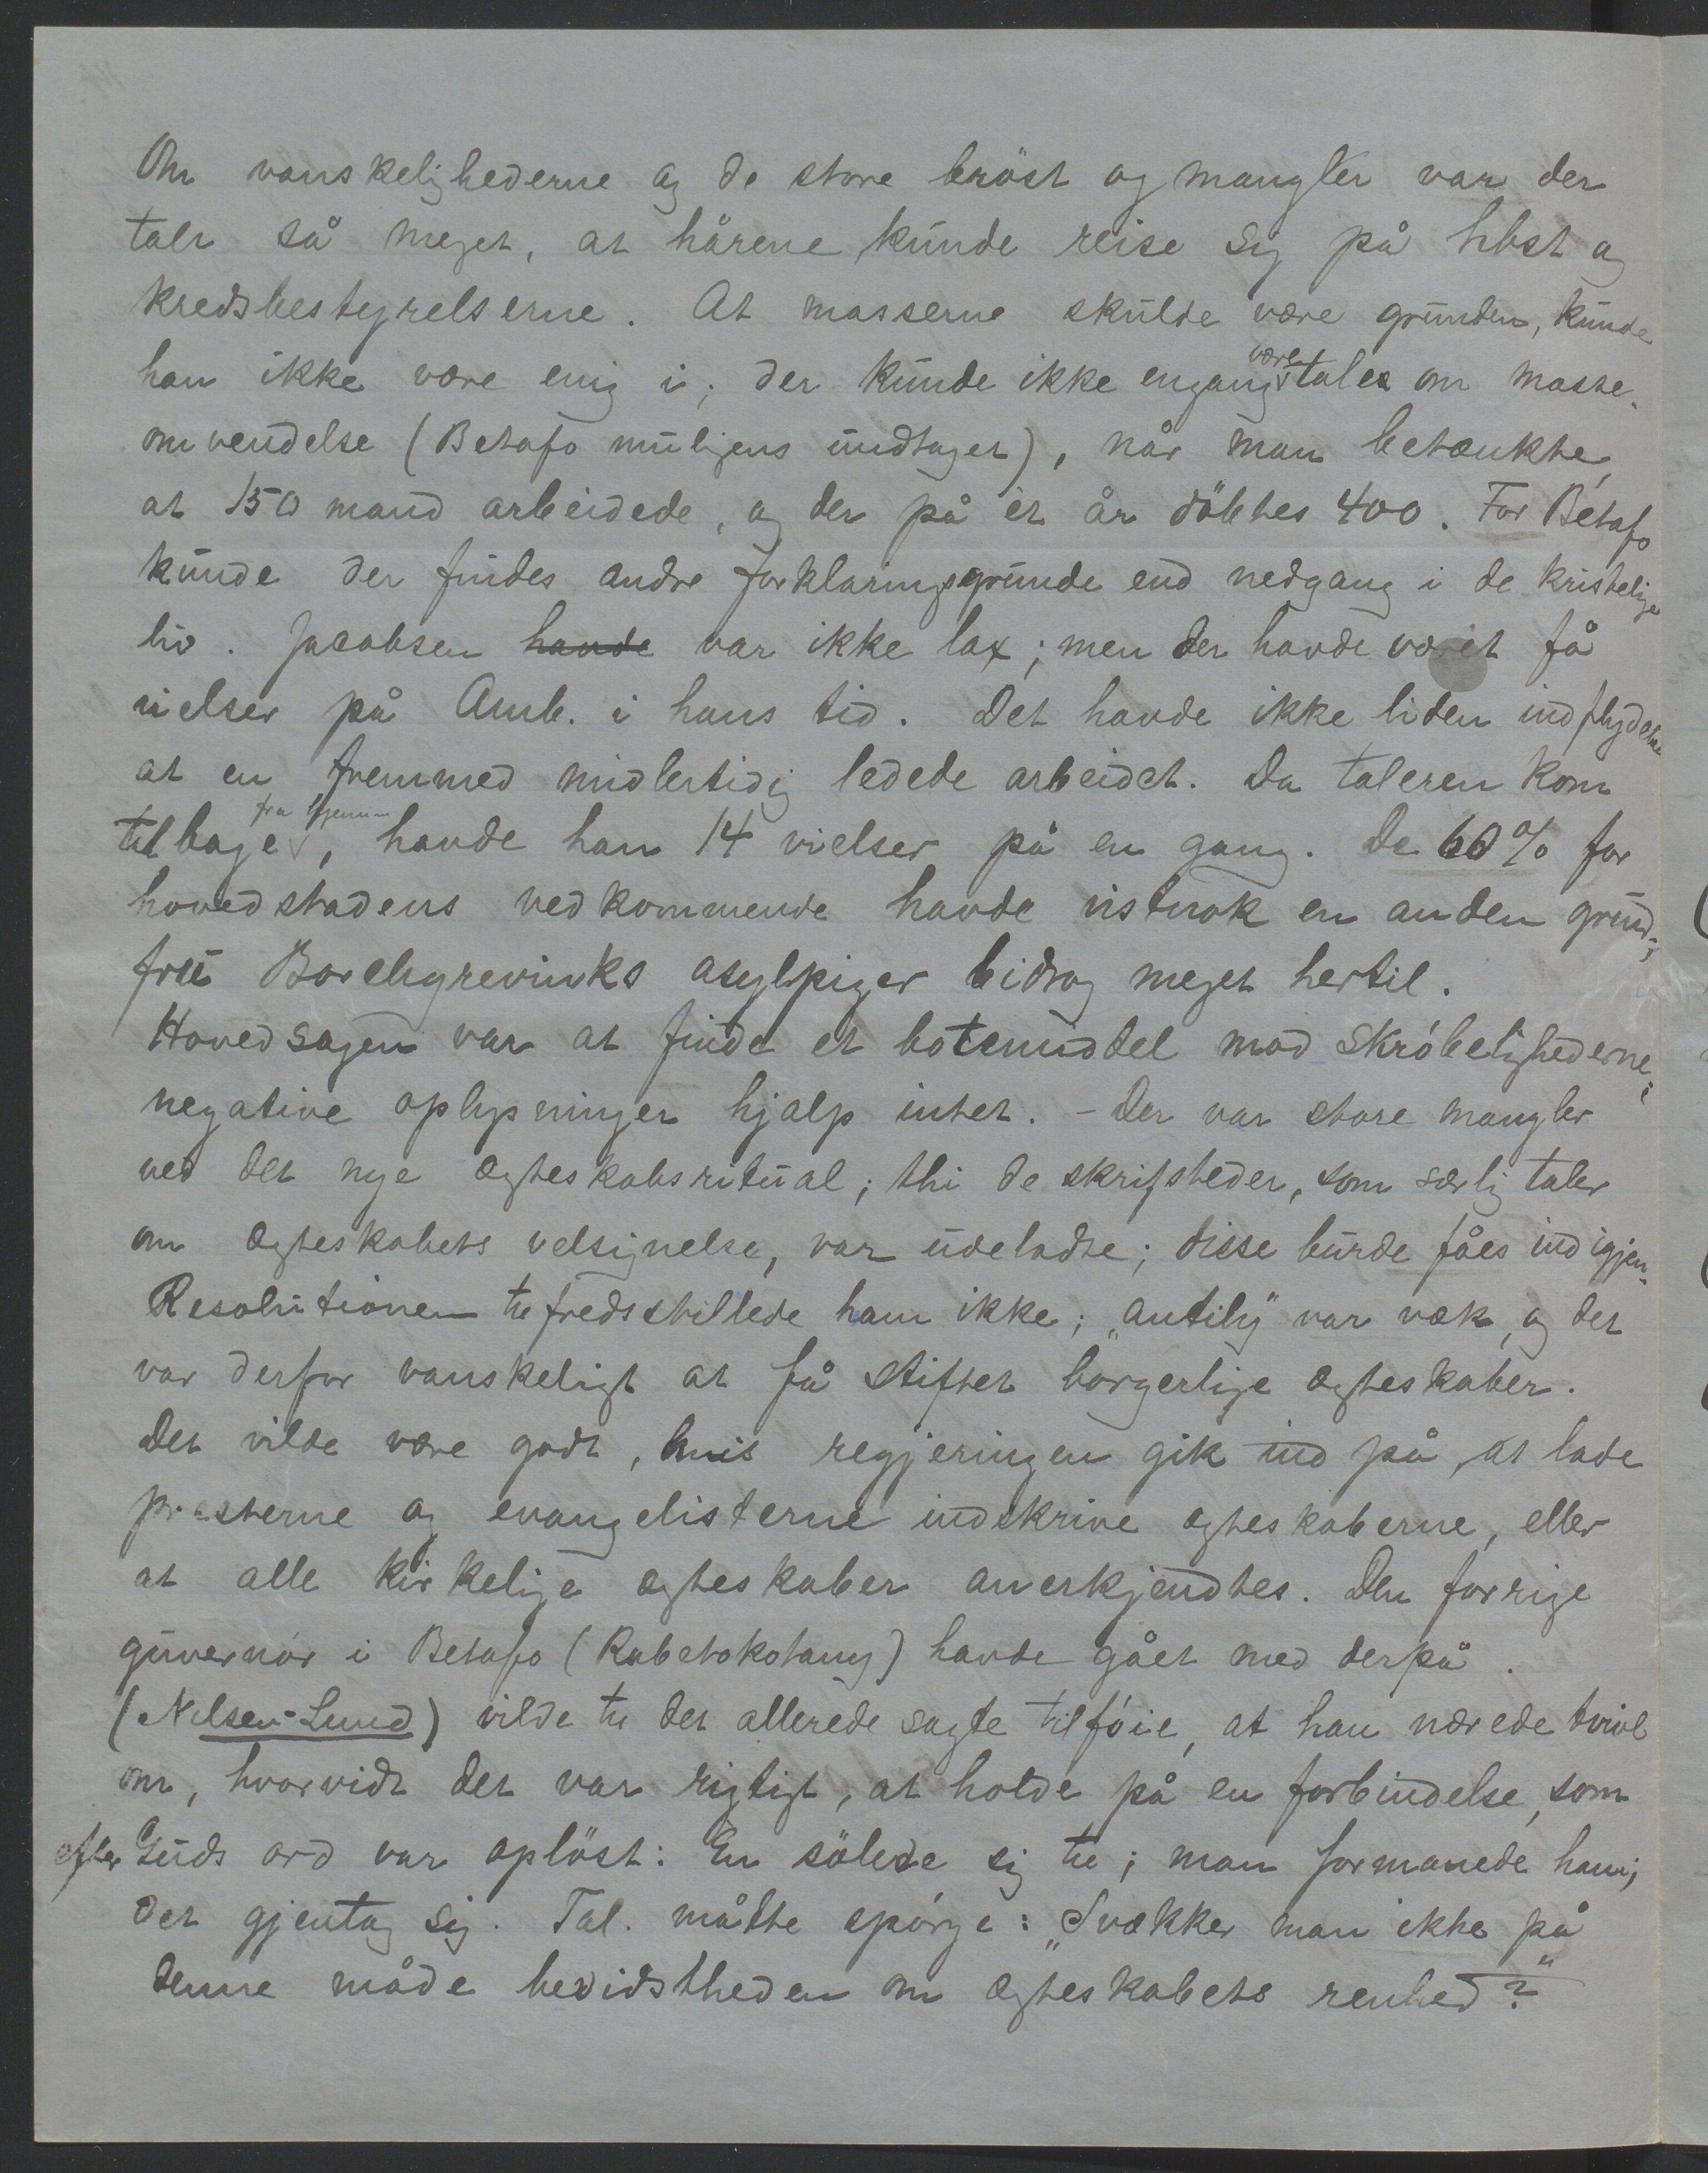 Om vanskelighederne og de store bröst og mangler var der
talt så meget, at hårene kunde reise sig på hbst og
kredsbestyrelserne. At masserne skulde være grunden, kunde
han ikke være enig i; der kunde ikke engang være tales om masse-
omvendelse (Betafo muligens undtaget), når man betænkte,
at 150 mand arbeidede, og der på et år döbtes 400. For Betafo
kunde der findes andre forklaringsgrunde end nedgang i de kristelige
liv. Jacobsen havde var ikke lax; men der havde været få
vielser på Amb. i hans tid. Det havde ikke liden indflydelse
at en fremmed midlertidig ledede arbeidet. Da taleren kom
tilbage fra hjemm, havde han 14 vielser på en gang. De 60% for
hovedstadens vedkommende havde vistnok en anden grund;
fru Borchgrevinks asylpiger bidrog meget hertil.
Hovedsagen var at finde et botemiddel mod skröbelighederne;
negative oplysninger hjalp intet. - Der var store mangler
ved det nye ægteskabsritual; thi de skriftsteder, som særlig taler
om ægteskabets velsignelse, var udeladte; disse burde fåes ind igjen.
Resolutionen tilfredsstillede ham ikke; "antily" var væk, og det
var derfor vanskeligt at få stiftet borgerlige ægteskaber.
Det vilde være godt, hvis regjeringen gik ind på, at lade
presterne og evangelisterne indskrive ægteskaberne, eller
at alle kirkelige ægteskaber anerkjendtes. Den forrige
guvernör i Betafo (Rabetokotany) havde gået med derpå.
(Nilsen-Lund) vilde til det allerede sagte tilföie, at han nærede tvivl
om, hvorvidt det var rigtigt, at holde på en forbindelse, som
efter Guds ord var oplöst: En sölede sig til; man formanede ham;
det gjentog sig. Tal. måtte spörge: "Svækker man ikke på
denne måde bevidstheden om ægteskabets renhed?"